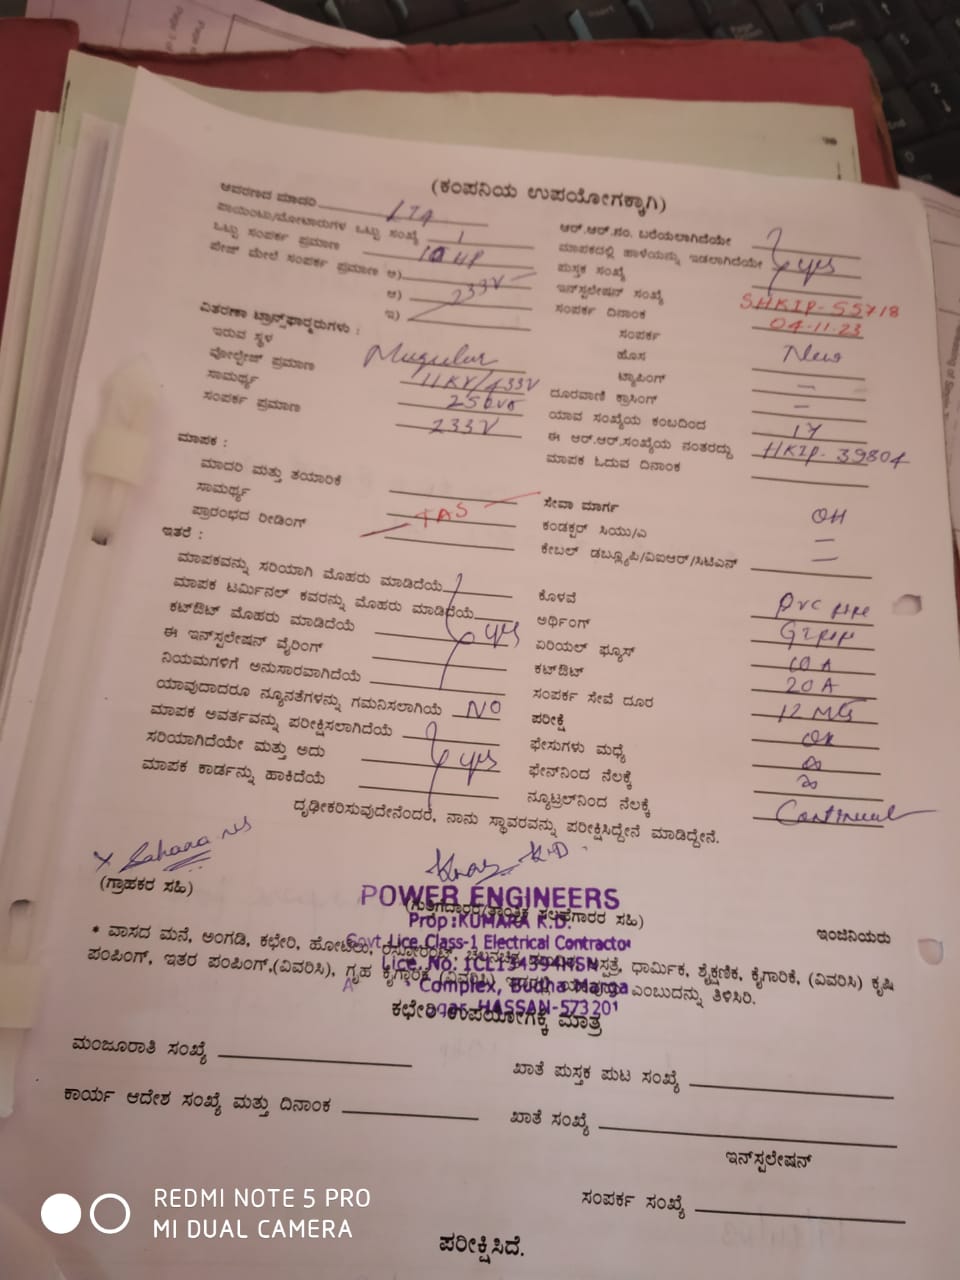 (ಕಂಪನಿಯ ಉಪಯೋಗಕ್ಕಾಗಿ)
ಆವರಣದ ಮಾದರಿ
ಪಾಯಿಂಟು/ಮೋಟಾರುಗಳ ಒಟ್ಟು ಸಂಖ್ಯೆ 1
ಒಟ್ಟು ಸಂಪರ್ಕ ಪ್ರಮಾಣ 10 HP
ಪೇಜ್ ಮೇಲೆ ಸಂಪರ್ಕ ಪ್ರಮಾಣ ಅ)
ಆ) 233V
ಇ)
ವಿತರಣಾ ಟ್ರಾನ್ಸ್‌ಫಾರ್‍ಮರುಗಳು :
ಇರುವ ಸ್ಥಳ
ವೋಲ್ಟೇಜ್ ಪ್ರಮಾಣ 11KV/433V
ಸಾಮರ್ಥ್ಯ
ಸಂಪರ್ಕ ಪ್ರಮಾಣ 233V
ಮಾಪಕ :
ಮಾದರಿ ಮತ್ತು ತಯಾರಿಕೆ
ಸಾಮರ್ಥ್ಯ
ಪ್ರಾರಂಭದ ರೀಡಿಂಗ್
ಇತರೆ :
ಮಾಪಕವನ್ನು ಸರಿಯಾಗಿ ಮೊಹರು ಮಾಡಿದೆಯೆ
ಮಾಪಕ ಟರ್ಮಿನಲ್ ಕವರನ್ನು ಮೊಹರು ಮಾಡಿದೆಯೆ
ಕಟ್‌ಔಟ್ ಮೊಹರು ಮಾಡಿದೆಯೆ yes
ಈ ಇನ್‌ಸ್ಟಲೇಷನ್ ವೈರಿಂಗ್
ನಿಯಮಗಳಿಗೆ ಅನುಸಾರವಾಗಿದೆಯೆ
ಯಾವುದಾದರೂ ನ್ಯೂನತೆಗಳನ್ನು ಗಮನಿಸಲಾಗಿಯೆ NO
ಮಾಪಕ ಅವರ್ತವನ್ನು ಪರೀಕ್ಷಿಸಲಾಗಿದೆಯೆ
ಸರಿಯಾಗಿದೆಯೇ ಮತ್ತು ಅದು yes
ಮಾಪಕ ಕಾರ್ಡನ್ನು ಹಾಕಿದೆಯೆ
ಆರ್.ಆರ್.ನಂ. ಬರೆಯಲಾಗಿದೆಯೇ
ಮಾಪಕದಲ್ಲಿ ಹಾಳೆಯನ್ನು ಇಡಲಾಗಿದೆಯೇ yes
ಪುಸ್ತಕ ಸಂಖ್ಯೆ
ಇನ್‌ಸ್ಟಲೇಷನ್ ಸಂಖ್ಯೆ SHKIP-55718
ಸಂಪರ್ಕ ದಿನಾಂಕ 04-11-23
ಸಂಪರ್ಕ
ಹೊಸ New
ಟ್ಯಾಪಿಂಗ್ —
ದೂರವಾಣಿ ಕ್ರಾಸಿಂಗ್ —
ಯಾವ ಸಂಖ್ಯೆಯ ಕಂಬದಿಂದ 17
ಈ ಆರ್.ಆರ್.ಸಂಖ್ಯೆಯ ನಂತರದ್ದು HKIP-39804
ಮಾಪಕ ಓದುವ ದಿನಾಂಕ
ಸೇವಾ ಮಾರ್ಗ OH
ಕಂಡಕ್ಟರ್ ಸಿಯು/ಎ —
ಕೇಬಲ್ ಡಬ್ಲ್ಯೂಪಿ/ವಿಐಆರ್/ಸಿಟಿಎಸ್ —
ಕೊಳವೆ PVC pipe
ಅರ್ಥಿಂಗ್ GI pipe
ಏರಿಯಲ್ ಫ್ಯೂಸ್ 10 A
ಕಟ್‌ಔಟ್ 20 A
ಸಂಪರ್ಕ ಸೇವೆ ದೂರ 12 Mts
ಪರೀಕ್ಷೆ OK
ಫೇಸುಗಳು ಮಧ್ಯೆ ∞
ಫೇಸ್‌ನಿಂದ ನೆಲಕ್ಕೆ ∞
ನ್ಯೂಟ್ರಲ್‌ನಿಂದ ನೆಲಕ್ಕೆ
ದೃಢೀಕರಿಸುವುದೇನೆಂದರೆ, ನಾನು ಸ್ಥಾವರವನ್ನು ಪರೀಕ್ಷಿಸಿದ್ದೇನೆ ಮಾಡಿದ್ದೇನೆ.
(ಗ್ರಾಹಕರ ಸಹಿ)
POWER ENGINEERS
(ಗುತ್ತಿಗೆದಾರರ/ತಾಂತ್ರಿಕ ಸಲಹೆಗಾರರ ಸಹಿ)
Prop:KUMARA K.D.
ಇಂಜಿನಿಯರು
Govt.Lice.Class-1 Electrical Contractor
* ವಾಸದ ಮನೆ, ಅಂಗಡಿ, ಕಛೇರಿ, ಹೋಟೆಲು, ಧಾರ್ಮಿಕ, ಶೈಕ್ಷಣಿಕ, ಕೈಗಾರಿಕೆ, (ವಿವರಿಸಿ) ಕೃಷಿ
Lice.No:1CL134394HSN
ಪಂಪಿಂಗ್, ಇತರ ಪಂಪಿಂಗ್,(ವಿವರಿಸಿ), ಗೃಹ ಕೈಗಾರಿಕೆ (ವಿವರಿಸಿ) ಎಂಬುದನ್ನು ತಿಳಿಸಿರಿ.
Complex, Budha Marga
HASSAN-573201
ಕಛೇರಿ ಉಪಯೋಗಕ್ಕೆ ಮಾತ್ರ
ಮಂಜೂರಾತಿ ಸಂಖ್ಯೆ
ಖಾತೆ ಪುಸ್ತಕ ಪುಟ ಸಂಖ್ಯೆ
ಕಾರ್ಯ ಆದೇಶ ಸಂಖ್ಯೆ ಮತ್ತು ದಿನಾಂಕ
ಖಾತೆ ಸಂಖ್ಯೆ
ಇನ್‌ಸ್ಟಲೇಷನ್
ಸಂಪರ್ಕ ಸಂಖ್ಯೆ
ಪರೀಕ್ಷಿಸಿದೆ.
REDMI NOTE 5 PRO
MI DUAL CAMERA